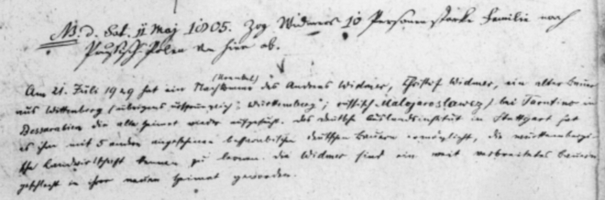 NB. d. Sat. 11 Maj 1805. Zog Widmers 10 Personen starke Familie nach
Preußisch-Polen von hier ab.
(Urenkel)
Am 21. Juli 1929 hat ein Nachkomme des Andreas Widmer, Christof Widmer, ein alter Bauer
aus Wittenberg (übrigens ursprünglich: Württemberg; russisch Malojaroslawez) bei Tarutino in
Bessarabien die alte Heimat wieder aufgesucht. Das deutsche Auslandsinstitut in Stuttgart hat
es ihm mit 5 andern angesehenen bessarabischen deutschen Bauern ermöglicht, die württembergi-
sche Landwirtschaft kennen zu lernen. Die Widmer sind ein weit verbreitetes Bauern
geschlecht in ihrer neuen Heimat geworden.